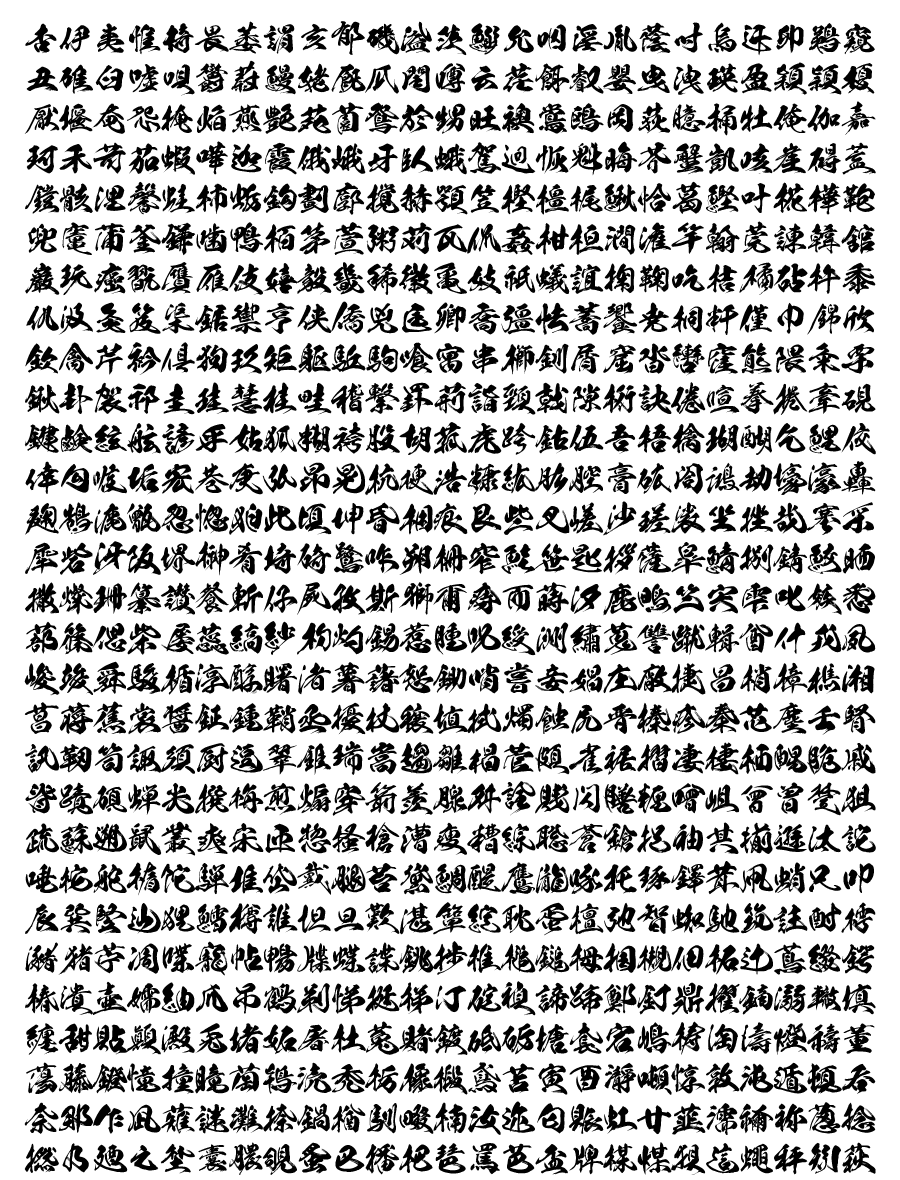 杏伊夷惟椅畏萎謂亥郁磯溢茨鰯允咽淫胤蔭吋烏迂卯鵜窺
丑碓臼嘘唄欝蔚鰻姥厩瓜閏噂云荏餌叡嬰曳洩瑛盈穎頴榎
厭堰奄怨掩焔燕艶苑薗鴛於甥旺襖鴬鴎岡荻臆桶牡俺伽嘉
珂禾苛茄蝦嘩迦霞俄峨牙臥蛾駕廻恢魁晦芥蟹凱咳崖碍蓋
鎧骸浬馨蛙柿蛎鈎劃廓撹赫顎笠樫橿梶鰍恰葛鰹叶椛樺鞄
兜竃蒲釜鎌噛鴨栢茅萱粥苅瓦侃姦柑桓澗潅竿翰莞諌韓舘
巌玩癌翫贋雁伎嬉毅畿稀徽亀妓祇蟻誼掬鞠吃桔橘砧杵黍
仇汲灸笈渠鋸禦亨侠僑兇匡卿喬彊怯蕎饗尭桐粁僅巾錦欣
欽禽芹衿倶狗玖矩躯駈駒喰寓串櫛釧屑窟沓轡窪熊隈粂栗
鍬卦袈祁圭珪慧桂畦稽繋罫荊詣頚戟隙桁訣倦喧拳捲牽硯
鍵鹸絃舷諺乎姑狐糊袴股胡菰虎跨鈷伍吾梧檎瑚醐乞鯉佼
倖勾喉垢宏巷庚弘昂晃杭梗浩糠紘肱腔膏砿閤鴻劫壕濠轟
麹鵠漉甑忽惚狛此頃坤昏梱痕艮些叉嵯沙瑳裟坐挫哉塞采
犀砦冴阪堺榊肴埼碕鷺咋朔柵窄鮭笹匙拶薩皐鯖捌錆鮫晒
撒燦珊纂讃餐斬仔屍孜斯獅爾痔而蒔汐鹿鴫竺宍雫叱嫉悉
蔀篠偲柴屡蕊縞紗杓灼錫惹腫呪綬洲繍蒐讐蹴輯酋什戎夙
峻竣舜駿循淳醇曙渚薯藷恕鋤哨嘗妾娼庄廠捷昌梢樟樵湘
菖蒋蕉裳醤鉦鍾鞘丞擾杖穣埴拭燭蝕尻晋榛疹秦芯塵壬腎
訊靭笥諏須厨逗翠錐瑞嵩趨雛椙菅頗雀裾摺凄棲栖醒脆戚
脊蹟碩蝉尖撰栴煎煽穿箭羨腺舛詮賎閃膳糎噌岨曾曽楚狙
疏蘇遡鼠叢爽宋匝惣掻槍漕痩糟綜聡蒼鎗捉袖其揃遜汰詑
唾柁舵楕陀騨堆岱戴腿苔黛鯛醍鷹瀧啄托琢鐸茸凧蛸只叩
辰巽竪辿狸鱈樽誰坦旦歎湛箪綻耽蛋檀弛智蜘馳筑註酎樗
瀦猪苧凋喋寵帖暢牒蝶諜銚捗椎槌鎚栂掴槻佃柘辻蔦綴鍔
椿潰壷嬬紬爪吊鶴剃悌挺梯汀碇禎諦蹄鄭釘鼎擢鏑溺轍填
纏甜貼顛澱兎堵妬屠杜菟賭鍍砥砺塘套宕嶋梼淘涛燈祷董
蕩藤鐙憧撞瞳萄鴇涜禿栃橡椴鳶苫寅酉瀞噸惇敦沌遁頓呑
奈那乍凪薙謎灘捺鍋楢馴畷楠汝迩匂賑虹廿韮濡禰祢葱捻
撚乃廼之埜嚢膿覗蚤巴播杷琶罵芭盃牌楳煤狽這蝿秤矧萩